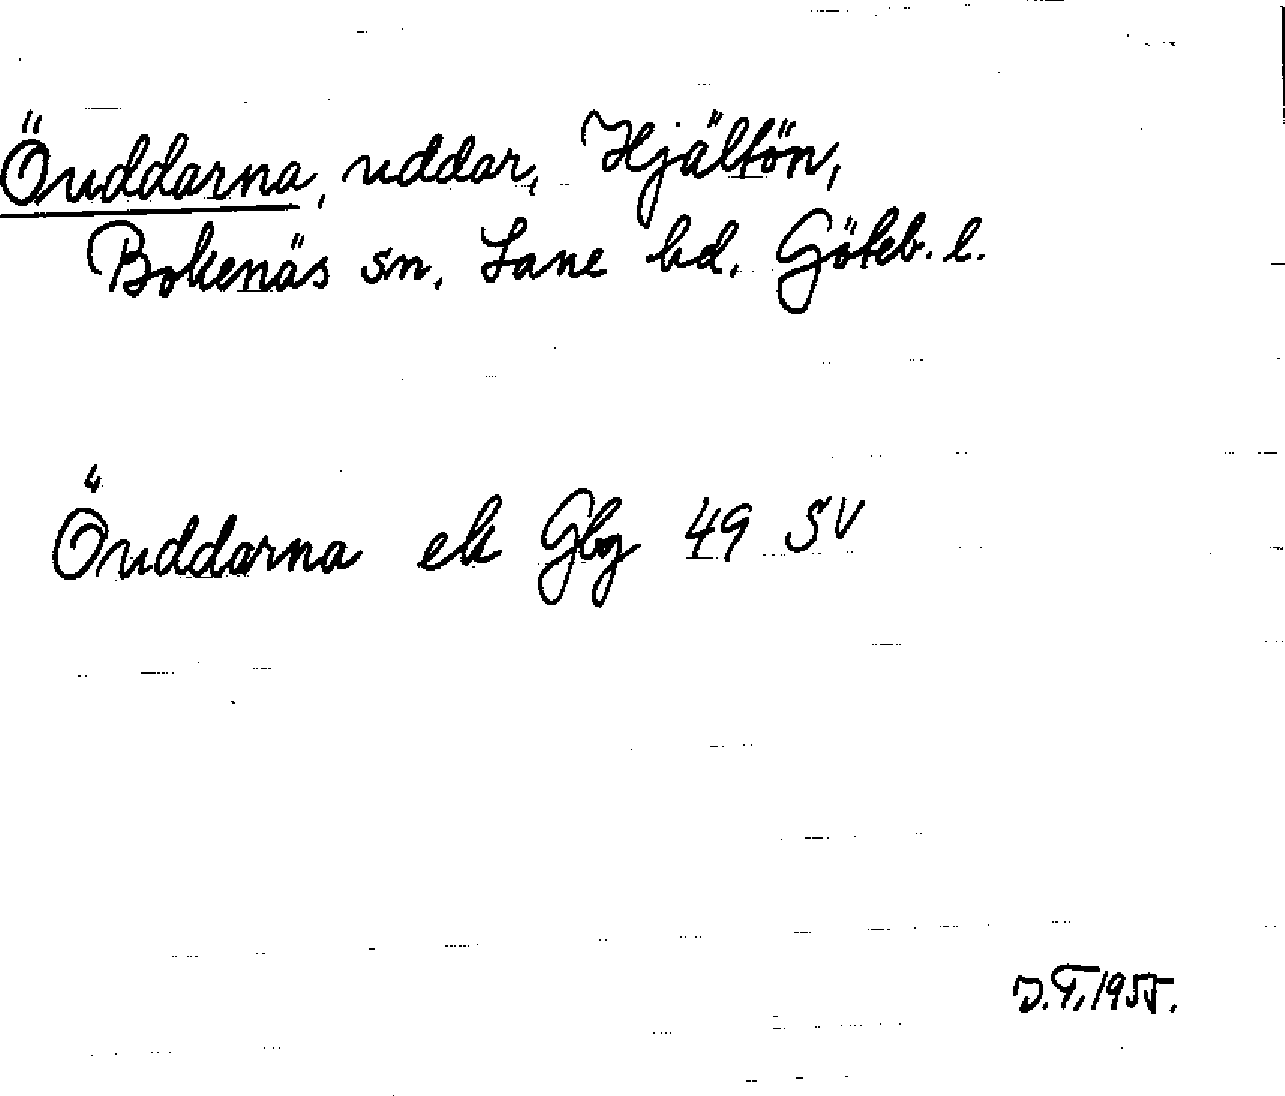 Öuddarna, uddar, Hjältön,
Bokenäs sn. Lane hd. Göteb. l.
Öuddarna ek Gbg 49 SV
D.T. 1955.